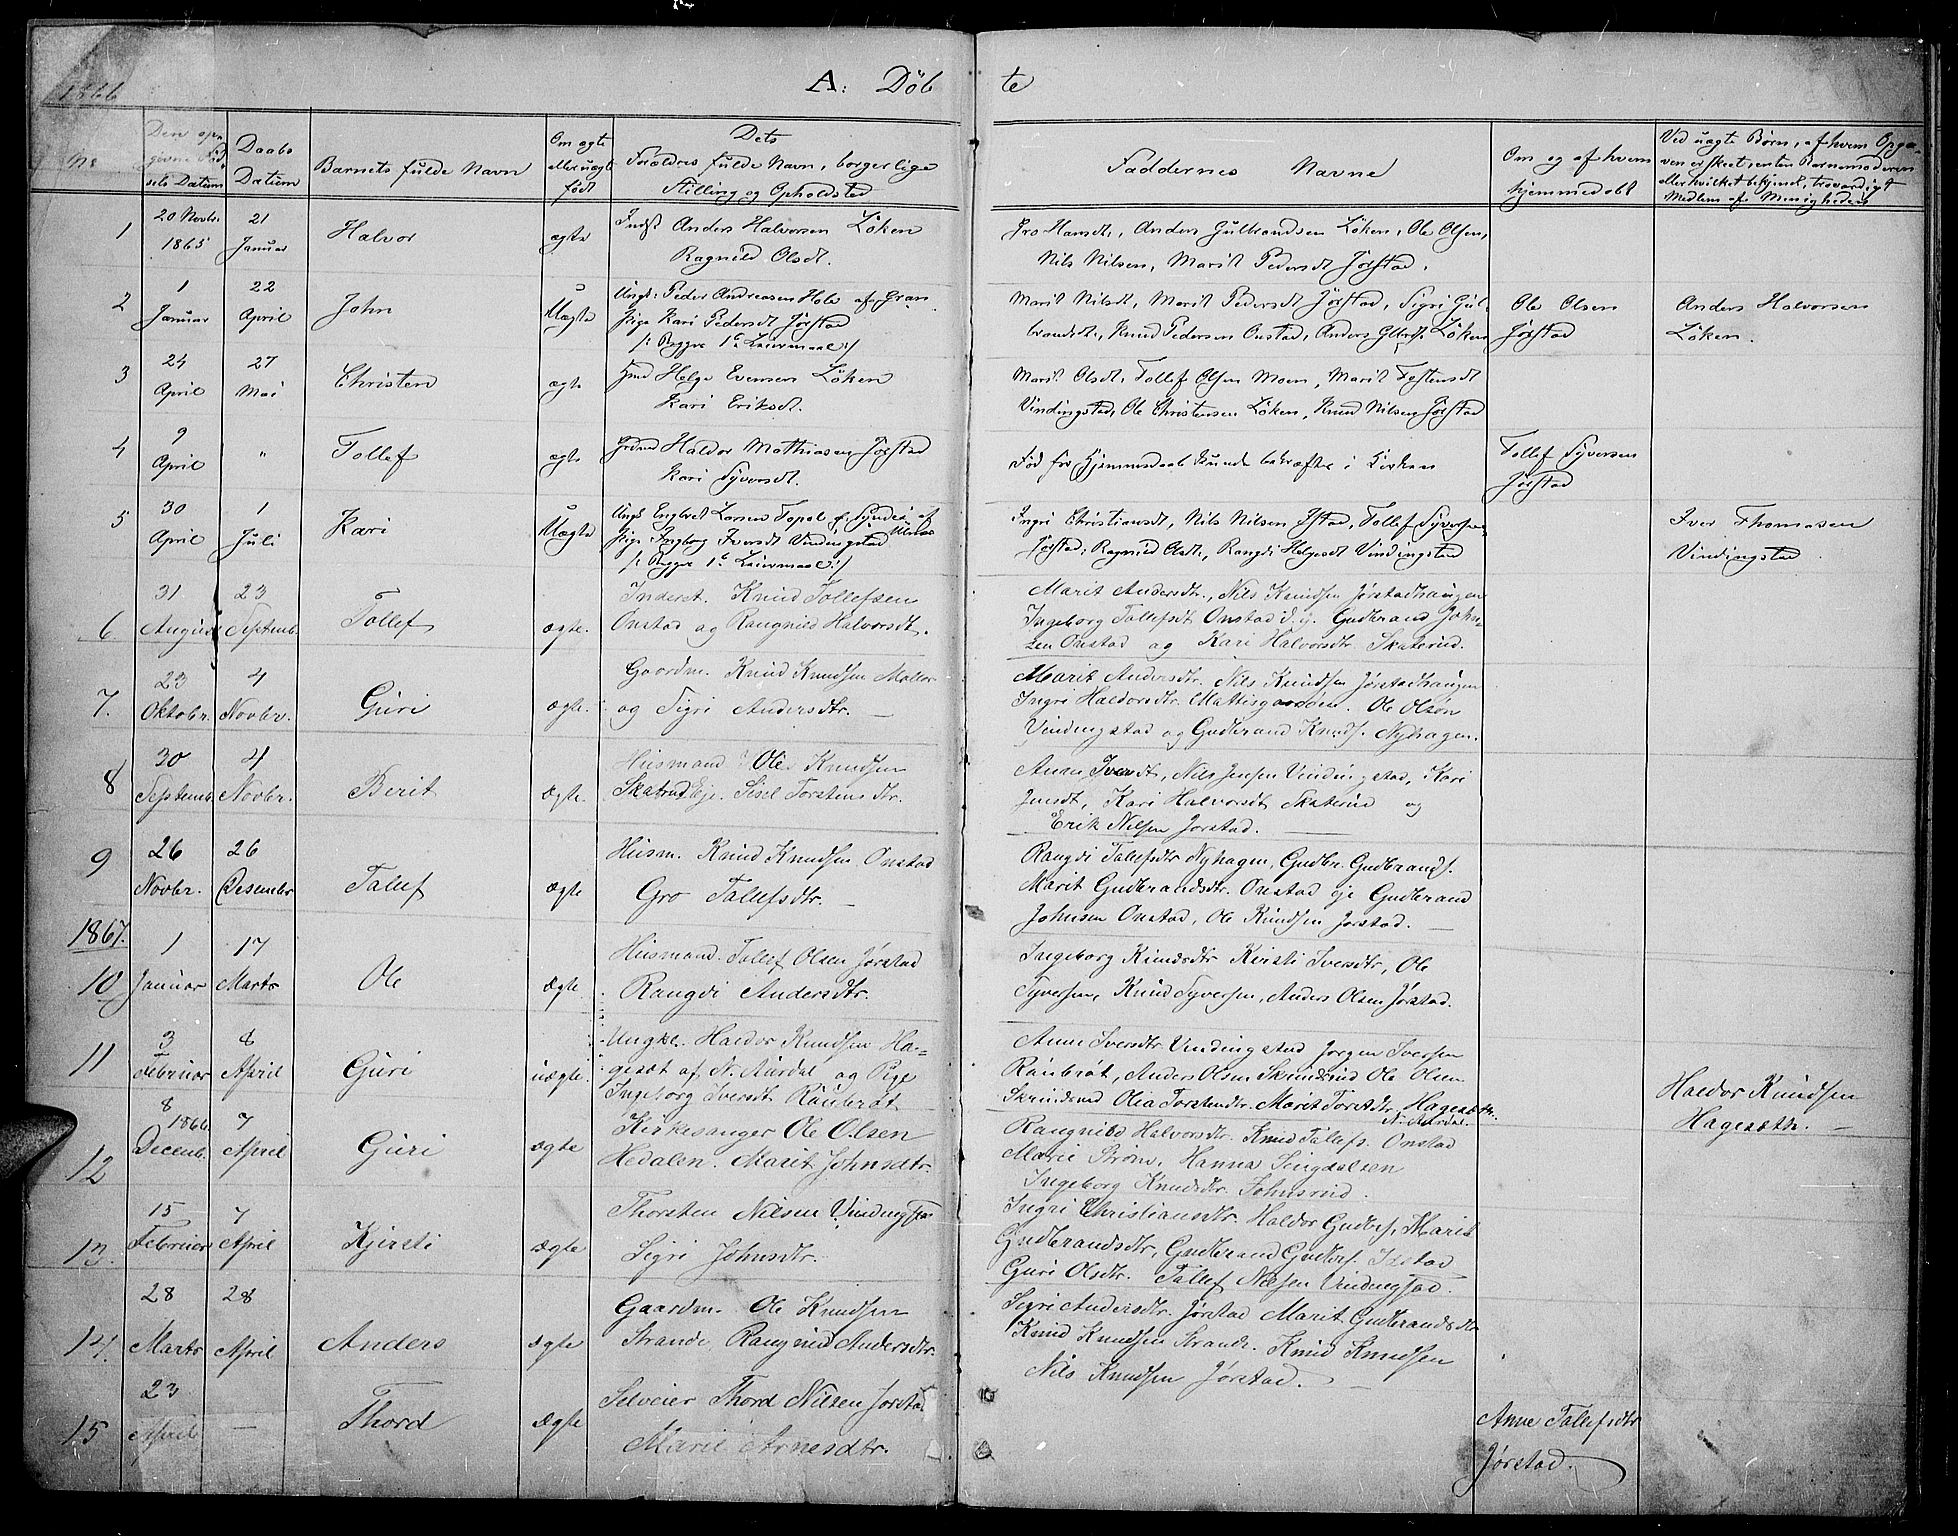 1866
A. Döb te
No
Den opgivne Fødsels Datum
Daabs Datum
Barnets fulde Navn
Om ægte eller uægte født
Dets Forældres fulde Navn, borgerlige Stilling og Opholdsted
Faddernes Navne
Om og af hvem hjemmedøbt
Ved uægte Børn, af hvem Opgaven er skeet, enten Barnemoderen eller hvilket bekjendt, troværdigt Medlem af Menigheden
1
20 Novbr. 1865
21 Januar
Halvor
ægte
Indst Anders Halvorsen Löken
Ragnild Olsdt.
Gro Hansdt., Anders Gulbrandsen Löken, Ole Olsen,
Nils Nilsen, Marit Pedersdt Jørstad.
2
1 Januar
22 April
John
Uægte
Ungk: Peder Andreasen Hole af Gran
Pige Kari Pedersdt Jørstad
/: Begges 1ste Leiermaal :/
Marit Nilsdt, Marit Pedersdt Jørstad, Sigri Gul-
brandsdt., Knud Pedersen Onstad, Anders Löken
Ole Olsen
Jørstad
Anders Halvorsen
Löken.
3
24 April
27 Mai
Christen
ægte
Helge Evensen Löken
Kari Eriksdt.
Marit Olsdt, Tollef Olsen Moen, Marit Testensdt
Vindingstad, Ole Christensen Löken, Knud Nilsen Jørstad
4
9 April
"
Tollef
ægte
Haldor Mathiasen Jørstad
Kari Syversdt.
Död før Hjemmedaab kunde bekræftes i Kirken
Tollef Syversen
Jørstad
5
30 April
1 Juli
Kari
Uægte
Ungk Engbret Larsen Topol af
Pige Ingborg Iversdt Vindingstad
/: Begges 1ste Leiermaal :/
Ingri Christiansdt, Nils Nilsen Jstad, Tollef Syversen
Jørstad, Ragnild Olsdt, Rangdi Helgesdt Vindingstad
Iver Thomasen
Vindingstad.
6.
31 August
23 Septemb.
Tollef
ægte.
Inderst. Knud Tollefsen
Onstad og Rangnild Halvorsdt.
Marit Andersdt., Nils Knudsen Jørstadhaugen
Ingeborg Tollefsdt Onstad Gudbrand John-
sen Onstad og Kari Halvorsdtr Skaterud.
7.
23 Oktobr.
4 Novbr.
Guri
ægte.
Gaardm. Knud Knudsen
og Sigri Andersdtr. —
Marit Andersdtr. Nils Knudsen Jørstadhaugen
Ingri Haldorsdtr. Ole Olsøn
Vindingstad og Gudbrand Knuds. Nyhagen.
8
30 Septemb.
4 Novbr.
Berit
Ægte.
Husmand Ole Knudsen
Skatrud Eje. Sisel Torstensdtr.
Anne Iversdt, Nils Jensen Vindingstad, Kari
Jensdt, Kari Halvorsdt Skaterud og
Erik Nilsen Jorstad. —
9
26 Novbr.
26 Desembr
Talef
Ægte
Husm. Knud Knudsen Onstad
Gro Talefsdtr. —
Rangdi Talefsdtr Nyhagen, Gudbr. Gudbrands.
Marit Gudbrandsdtr. Onstad eje Gudbrand
Johnsen Onstad, Ole Knudsen Jorstad. —
1867.
10
1 Januar
17 Marts
Ole
Ægte
Husmand. Tallef Olsen Jørstad
Rangdi Andersdtr.
Ingeborg Knudsdtr Kirsti Iversdtr, Ole
Syversen, Knud Syversen, Anders Olsen Jørstad.
11
3 Februar
8 April
Guri
uægte.
Ungke. Haldor Knudsen Ha-
gesæt af N. Aurdal og Pige
Ingeborg Iversdt Raubrøt
Anne Iversdtr Vindingstad Jørgen Iversen
Raubrøt, Anders Olsen Skrindsrud Ole Olsen
Skrindsrud Olea Torstendtr. Marit Torstdtr. Hagesæth.
N. Aurdal.
Haldor Knudsen
Hagesæth. —
12
8 1866 Decemb.
7 April
Guri
ægte
Kirkesanger Ole Olsen
Hedalen. Marit Johnsdtr.
Rangnild Halvorsdtr. Knud Tallefs. Onstad
Marie Strøm, Hanna Singdalsen
Ingeborg Knudsdtr. Johnsrud.
13.
15 Februar
7 April
Kjersti
Ægte
Thorsten Nilsen Vindingstad
Sigri Johnsdtr.
Ingri Christiansdtr. Haldor Gudbrs, Marit
Gudbrandsdtr, Gudbrand Gudbrs. Ildstad
Guri Olsdtr. Tallef Nilsen Vindingstad.
14.
28 Marts
28 April
Anders
Ægte
Gaardm. Ole Knudsen
Strande, Rangnild Andersdtr.
Sigri Andersdtr. Jørstad Marit Gudbrandsdtr
Knud Knudsen Strande. Knud Knudsen
Nils Knudsen Jørstad. —
15
23 April
—
Thord
Ægte
Selveier Thord Nilsen Jorstad
Marie Arnesdtr.
Anne Tallefsdtr
Jørstad.